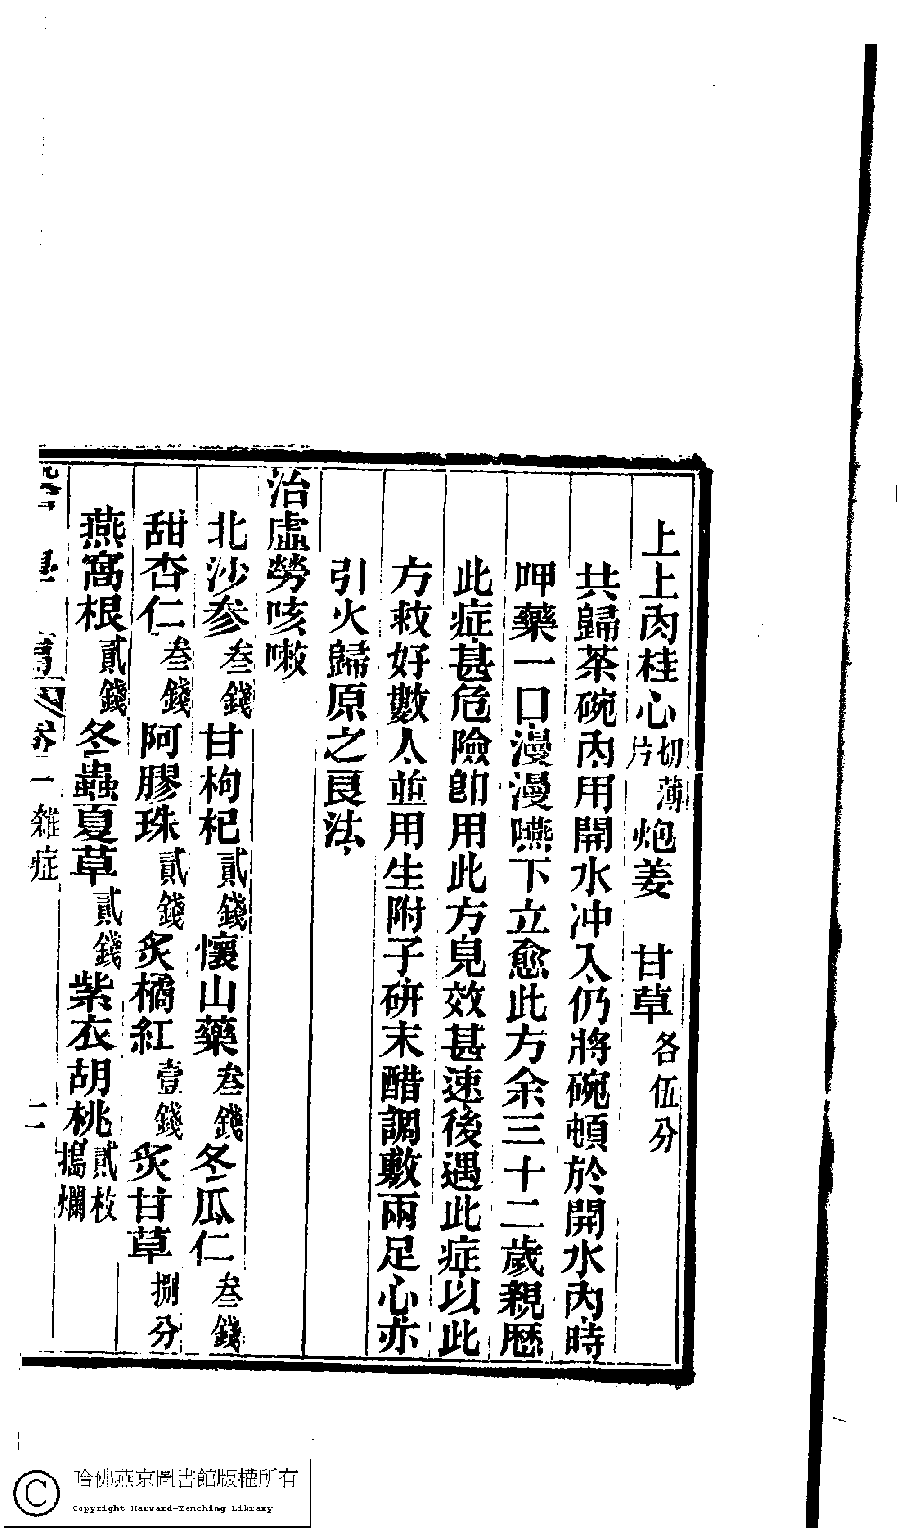 上上肉桂心切薄片炮姜 甘草各伍分
共歸茶碗內用開水沖入仍將碗頓於開水內時
呷藥一口漫漫嚥下立愈此方余三十二歲親歷
此症甚危險卽用此方見效甚速後遇此症以此
方救好數人並用生附子研末醋調敷兩足心亦
引火歸原之良法
治虛勞咳嗽
北沙參叁錢甘枸杞貳錢懷山藥叁錢冬瓜仁叁錢
甜杏仁叁錢阿膠珠貳錢炙橘紅壹錢炙甘草捌分
燕窩根貳錢冬蟲夏草貳錢紫衣胡桃貳枚搗爛
書 卷二 雜症 二
哈佛燕京圖書館版權所有
Copyright Harvard-Yenching Library